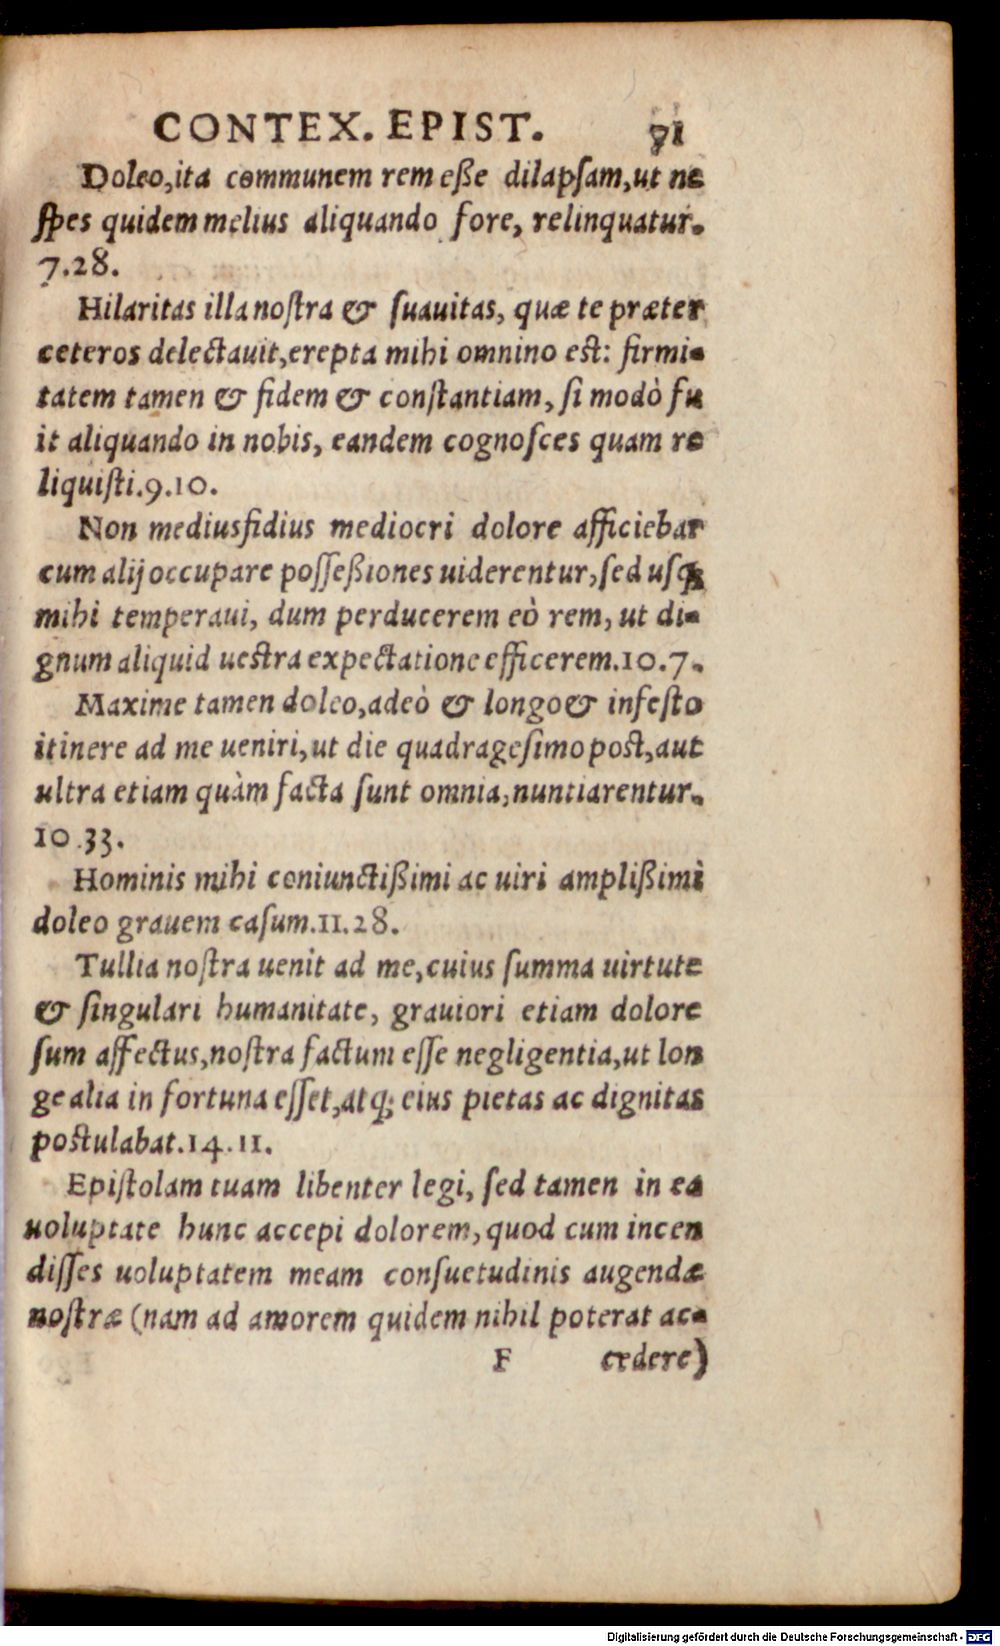 CONTEX. EPIST. 91
Doleo,ita communem rem eße dilapſam,ut ne
ſpes quidem melius aliquando fore, relinquatur.
7.28.
Hilaritas illa noſtra & ſuauitas, quæ te præter
ceteros delectauit,erepta mihi omnino est: firmi-
tatem tamen & fidem & conſtantiam, ſi modò fu
it aliquando in nobis, eandem cognoſces quam re
liquiſti.9.10.
Non mediusfidius mediocri dolore afficiebar
cum alij occupare poſſeßiones uiderentur,ſed uſq;
mihi temperaui, dum perducerem eò rem, ut di-
gnum aliquid uestra expectatione efficerem.10.7.
Maxime tamen doleo,adeò & longo & infeſto
itinere ad me ueniri,ut die quadrageſimo post,aut
ultra etiam quàm facta ſunt omnia,nuntiarentur.
10.33.
Hominis mihi coniunctißimi ac uiri amplißimi
doleo grauem caſum.11.28.
Tullia noſtra uenit ad me,cuius ſumma uirtute
& ſingulari humanitate, grauiori etiam dolore
ſum affectus,noſtra factum eſſe negligentia,ut lon
ge alia in fortuna eſſet,atq; eius pietas ac dignitas
postulabat.14.11.
Epiſtolam tuam libenter legi, ſed tamen in ea
uoluptate hunc accepi dolorem, quod cum incen
diſſes uoluptatem meam conſuetudinis augendæ
noſtræ (nam ad amorem quidem nihil poterat ac-
F cedere)
Digitalisierung gefördert durch die Deutsche Forschungsgemeinschaft - DFG